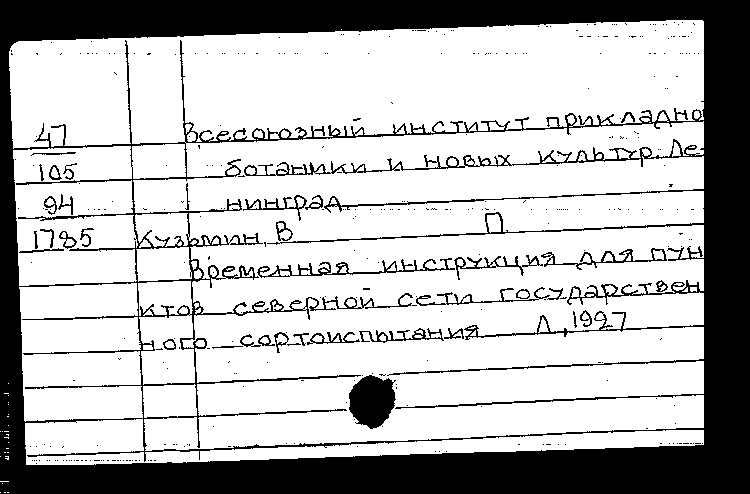 47 Всесоюзный институт прикладной
105 ботаники и новых культур. Ле-
94 нинград
1785 Кузьмин, В П
Временная инструкция для пун
ктов северной сети государствен
ного сортоиспытания Л, 1927